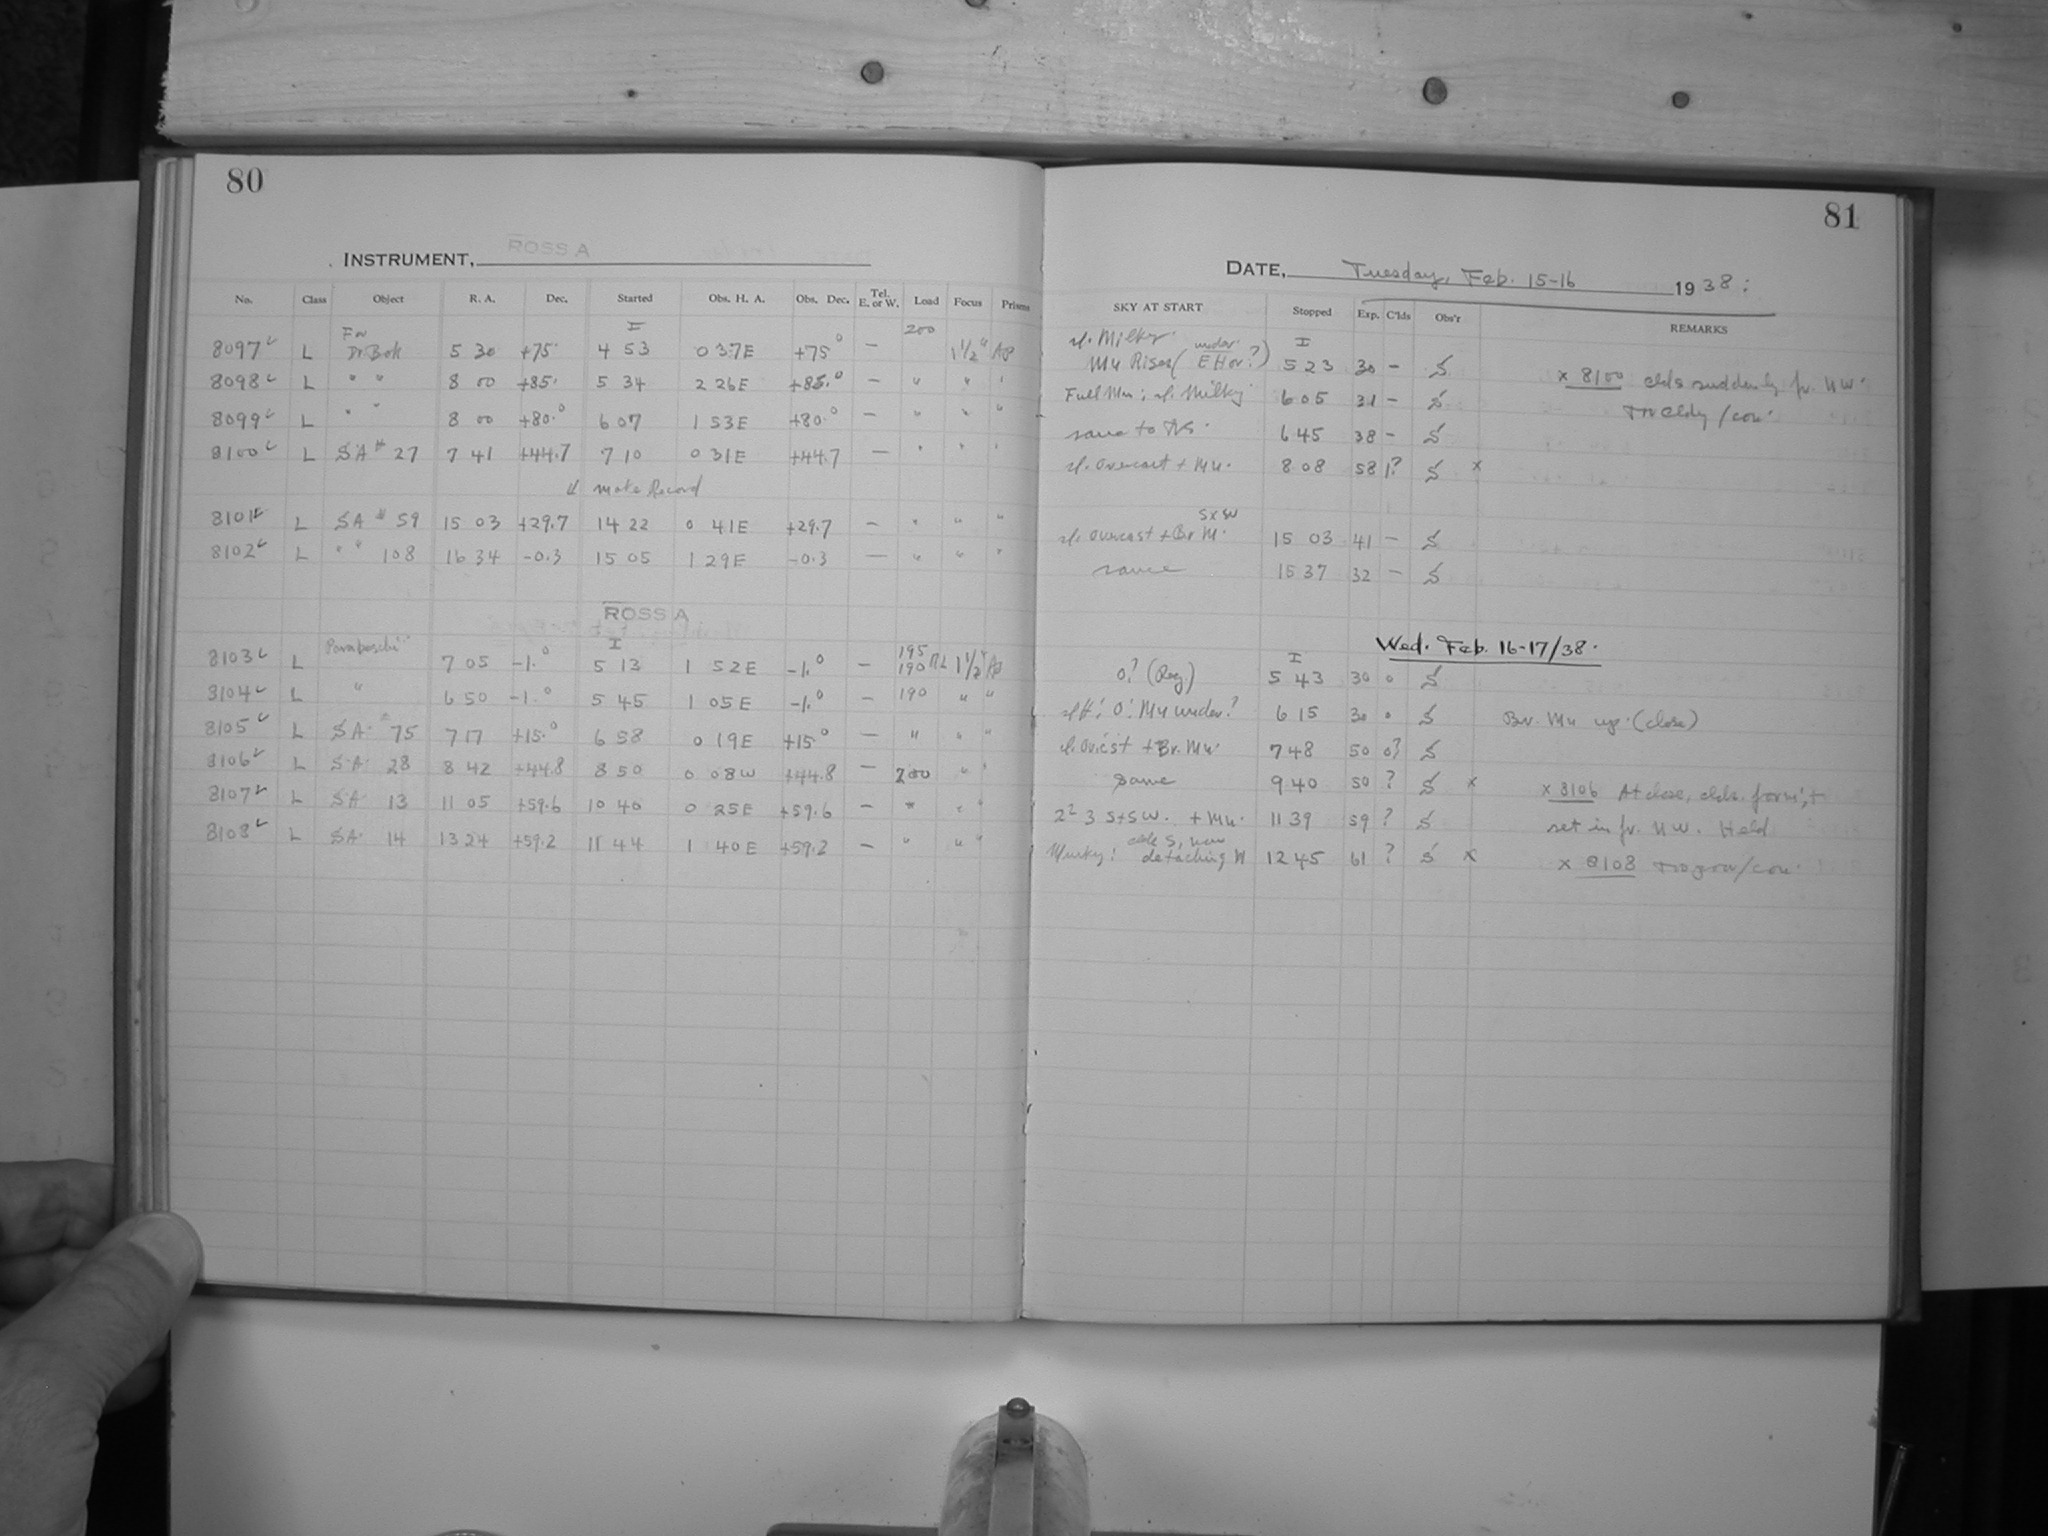 80
INSTRUMENT, ROSS A
No. Class Object R. A. Dec. Started Obs. H. A. Obs. Dec. Tel. E. or W. Load Focus Prisms
8097 L For Dr. Bok 5 30 +75° 4 53 0 37E +75° — 200 1½"
8098 L " " 8 00 +85° 5 34 2 26E +85.° — " " "
8099 L " " 8 00 +80.° 6 07 1 53E +80.° — " " "
8100 L SA # 27 7 41 +44.7 7 10 0 31E +44.7 — " " "
make Record
8101 L SA # 59 15 03 +29.7 14 22 0 41E +29.7 — " " "
8102 L " " 108 16 34 -0.3 15 05 1 29E -0.3 — " " "
ROSS A
8103 L 7 05 -1.° 5 13 1 52E -1.° — 195 190 1½"
8104 L " 6 50 -1.° 5 45 1 05E -1.° — 190 " "
8105 L SA # 75 7 17 +15.° 6 58 0 19E +15° — " " "
8106 L SA 28 8 42 +44.8 8 50 0 08W +44.8 — 200 " "
8107 L SA 13 11 05 +59.6 10 40 0 25E +59.6 — " " "
8108 L SA 14 13 24 +59.2 11 44 1 40E +59.2 — " " "
81
DATE, Tuesday, Feb. 15-16 1938:
SKY AT START Stopped Exp. C'lds Obs'r REMARKS
sl. Milky.
Mn Rises (under E Hor.?) 5 23 30 — S
Full Mn; sl. Milky 6 05 31 — S x 8100 clds suddenly fr. NW.
same to 6 45 38 — S too cldy / con.
sl. overcast + Mn. 8 08 58 1? S x
sl. overcast + Br. M. SxSW 15 03 41 — S
same 15 37 32 — S
Wed. Feb. 16-17/38.
0? (Reg.) 5 43 30 0 S
0: Mn under? 6 15 30 0 S Br. Mn up. (close)
sl. ov'c'st + Br. Mn. 7 48 50 0? S
same 9 40 50 ? S x x 8106 At close, clds. form'g +
2² 3 S+SW. + Mn. 11 39 59 ? S set in fr. NW. Held
Murky: clds S, now detaching W 12 45 61 ? S x x 8108 / con.